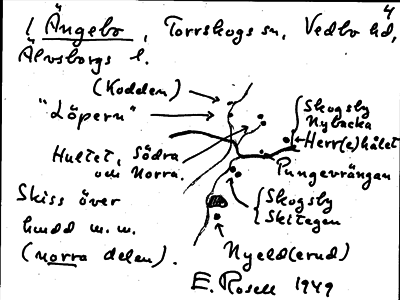 4
1 Ängebo, Torrskogs sn, Vedbo hd,
Älvsborgs l.
(Kodden)
"Löpern"
Skogsby
Nybacka
Herr(e)hålet
Hultet, Södra
och Norra.
Pungevrängan
Skiss över
hudd m.m.
(norra delen).
Skogsby
Skitegen
Nyeld(erud)
E. Rosell 1949